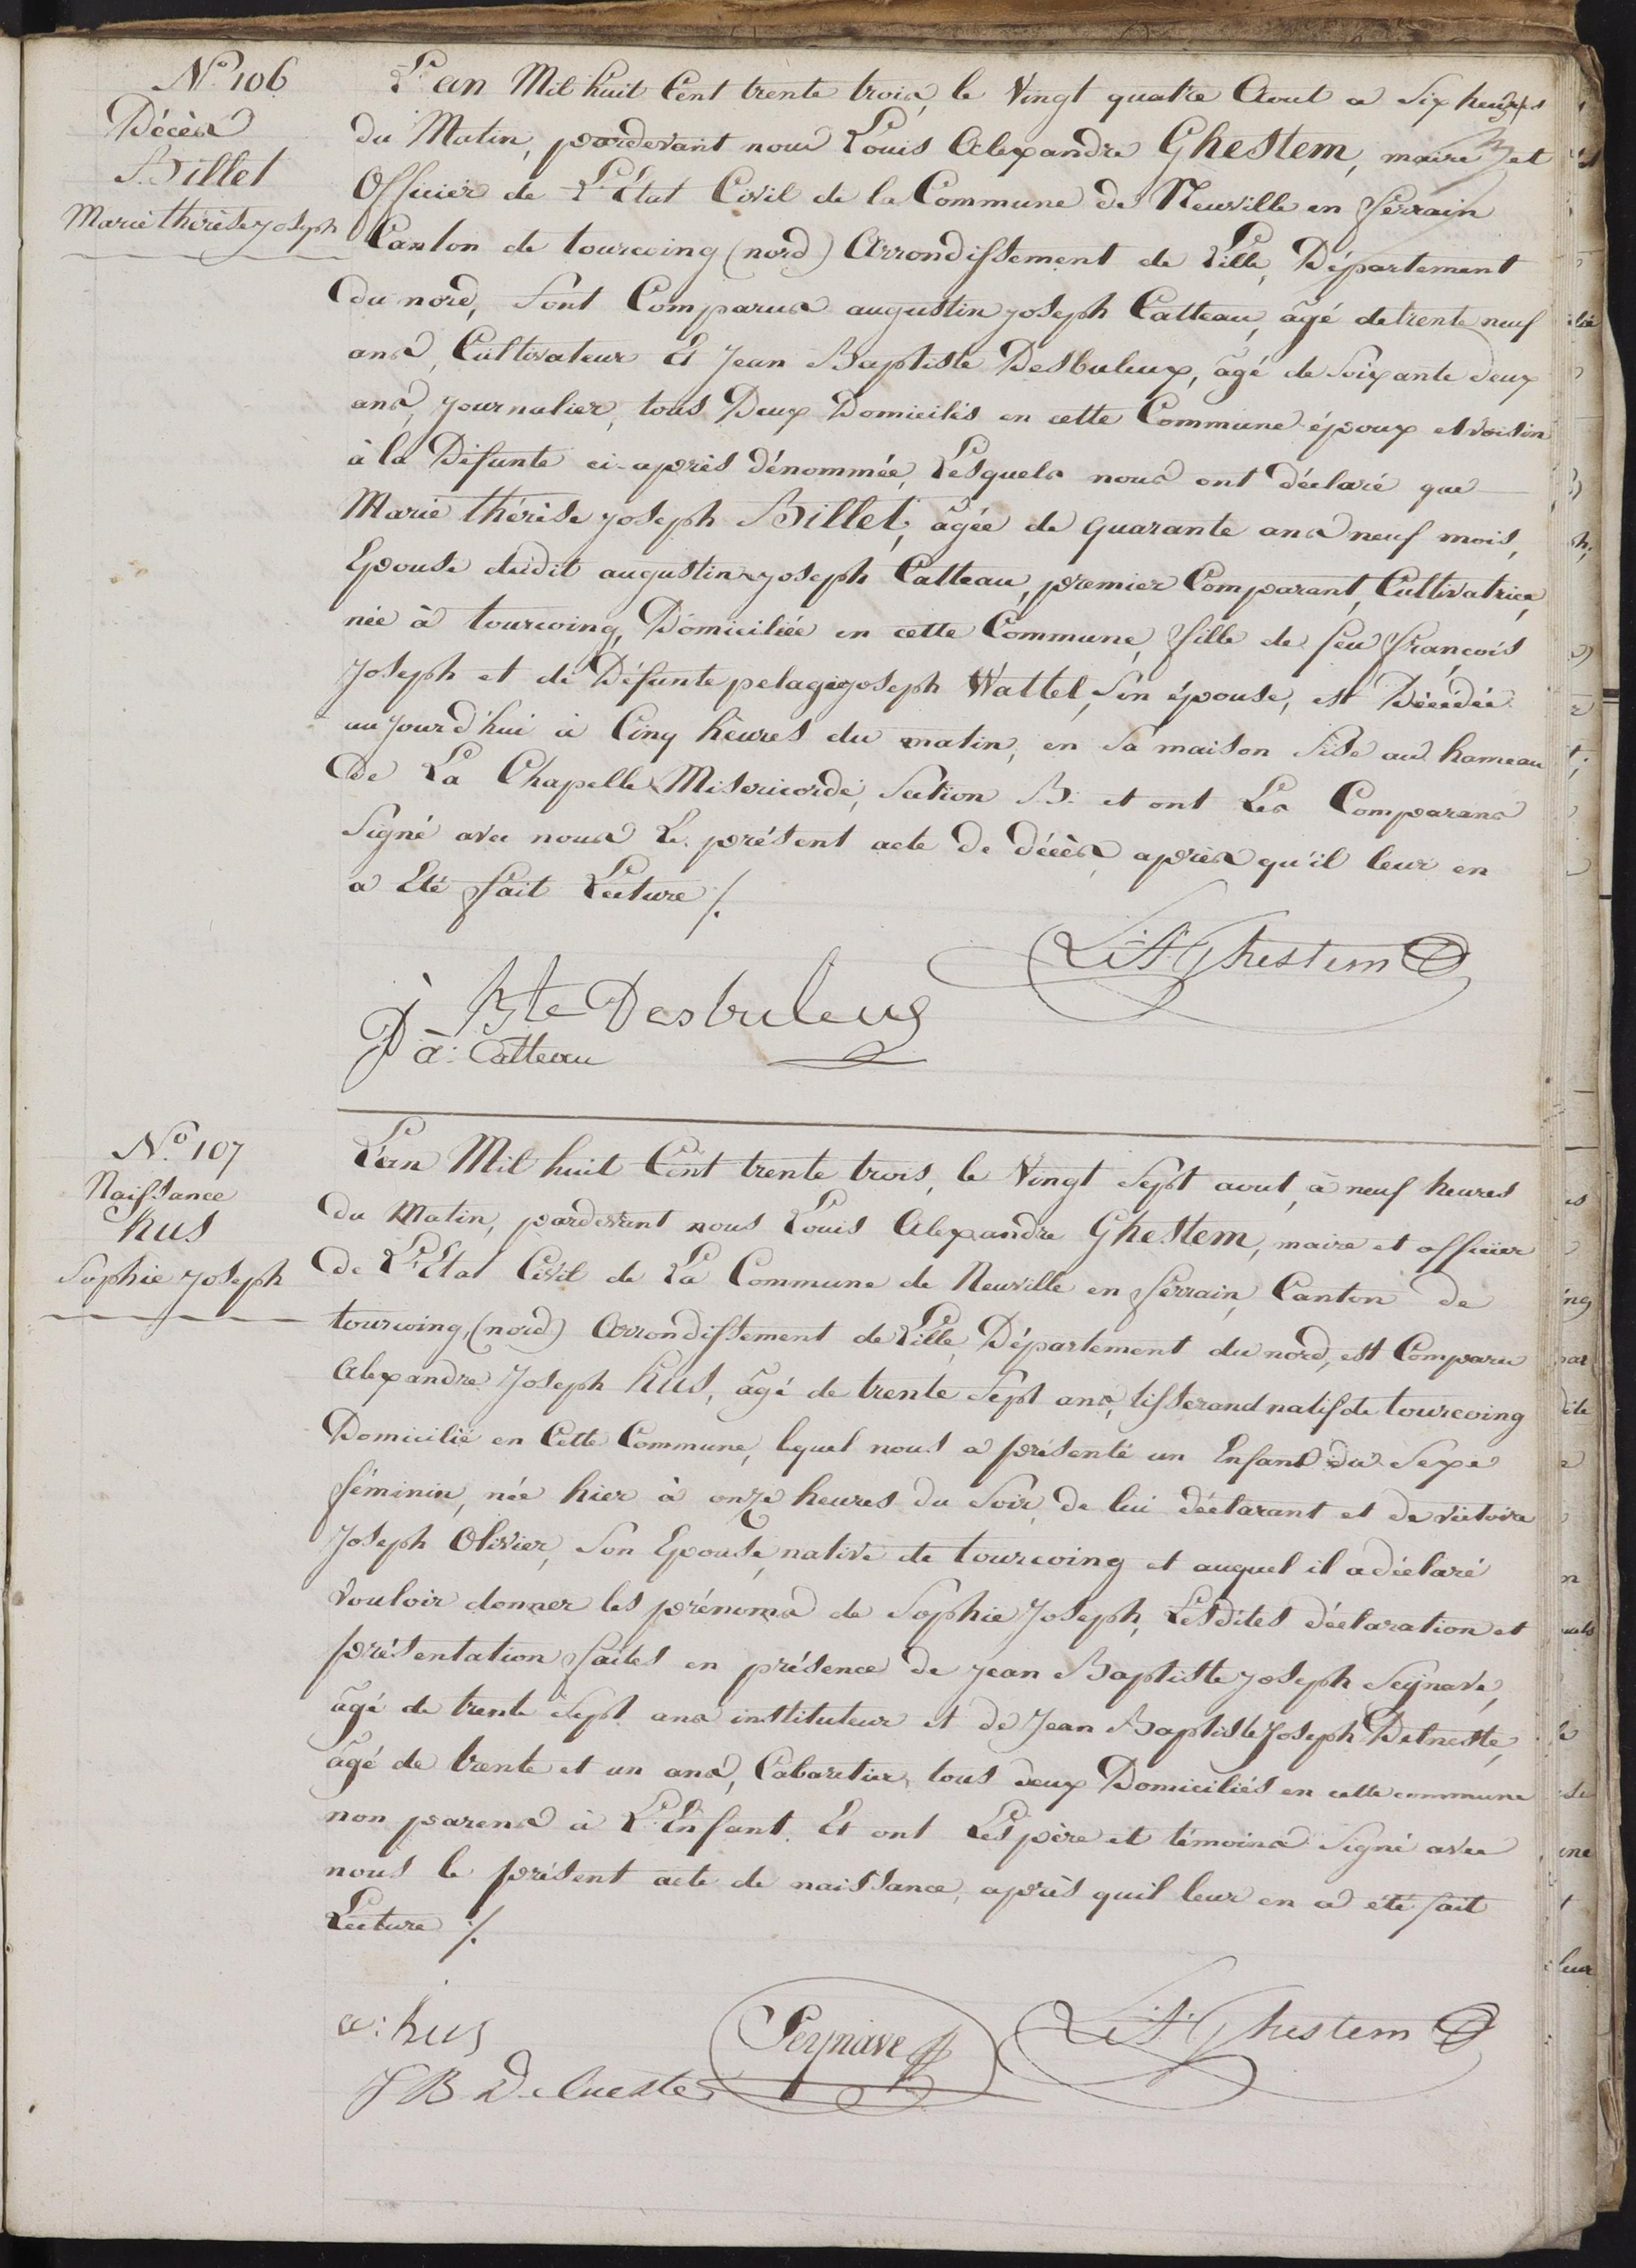 N.º 106
Décès
Billet
Marie thérèse joseph
L'an Mil huit Cent trente trois, le Vingt quatre Aout a Six heures
du Matin, pardevant nous Louis Alexandre Ghestem, maire et
Officier de L'Etat Civil de la Commune de Neuville en ferrain
Canton de tourcoing (nord) Arrondissement de Lille, Département
du nord, Sont Comparus augustin joseph Catteau, âgé de trente neuf
ans, Cultivateur Et Jean Baptiste Desbuleux, âgé de Soixante deux
ans, journalier, tous Deux Domiciliés en cette Commune époux et voisin
à la Défunte ci-après dénommée, Lesquels nous ont déclaré que
Marie thérèse joseph Billet, âgée de quarante ans neuf mois,
Epouse dudit augustin joseph Catteau, premier Comparant, Cultivatrice,
née à tourcoing, Domiciliée en cette Commune, fille de feu françois
Joseph et de Défunte pelagie joseph Wattel, Son épouse, est Décédée
aujourd'hui à Cinq heures du matin, en Sa maison Sise au hameau
De La Chapelle Misericorde, Section B. et ont Les Comparans
Signé avec nous Le présent acte de décès, après qu'il leur en
a Eté fait Lecture ./.
L: A: Ghestem
J Bte Desbuleux
a: Catteau
N.º 107
Naissance
hus
Sophie joseph
L'an Mil huit Cent trente trois, le Vingt Sept aout, à neuf heures
Du Matin, pardevant nous Louis Alexandre Ghestem, maire et officier
De L'Etat Civil de La Commune de Neuville en ferrain, Canton de
tourcoing, (nord) Arrondissement de Lille, Département du nord, est Comparu
Alexandre Joseph hus, âgé de trente Sept ans, tisserand natif de tourcoing
Domicilié en Cette Commune, lequel nous a présenté un Enfant du Sexe
féminin, née hier à onze heures du Soir, de lui déclarant et de victoire
Joseph Olivier, Son Epouse, native de tourcoing et auquel il a déclaré
vouloir donner les prénoms de Sophie Joseph, Lesdites déclaration et
présentation faites en présence de jean Baptiste joseph Seynave,
âgé de trente Sept ans instituteur et de Jean Baptiste Joseph Delneste,
âgé de trente et un ans, Cabaretier, tous deux Domiciliés en cette commune
non parens à L'Enfant. Et ont Les père et témoins Signé avec
nous le présent acte de naissance, après quil leur en a été fait
Lecture ./.
a: hus
Seynave
L: A: Ghestem
J B Delneste